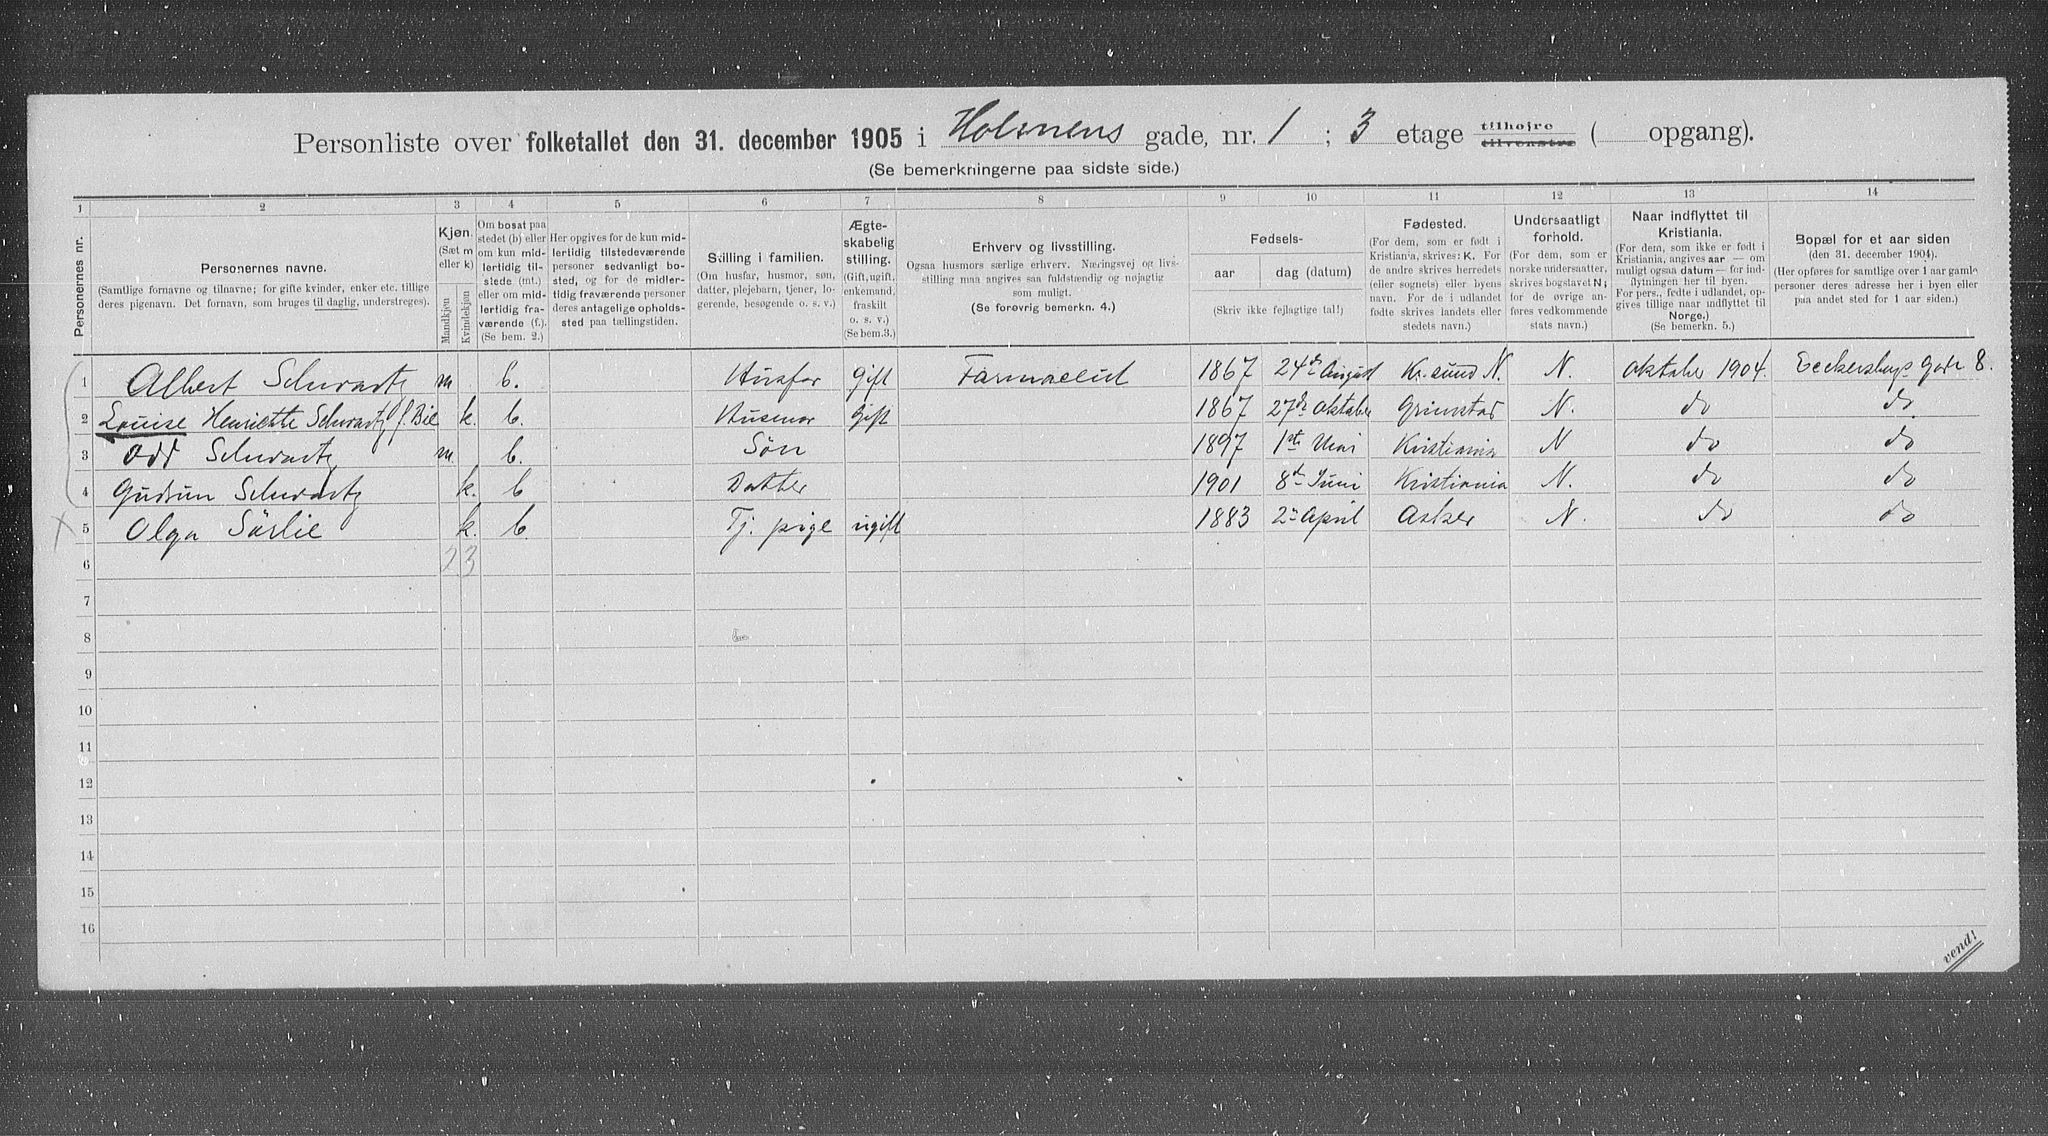 Personliste over folketallet den 31. december 1905 i Holmens gade, nr. 1 ; 3 etage tilhøjre tilvenstre ( opgang).
(Se bemerkningerne paa sidste side.)
1 2 3 4 5 6 7 8 9 10 11 12 13 14
Personernes nr.
Personernes navne.
(Samtlige fornavne og tilnavne; for gifte kvinder, enker etc. tillige
deres pigenavn. Det fornavn, som bruges til daglig, understreges).
Kjøn.
(Sæt m
eller k)
Mandkjøn
Kvindekjøn
Om bosat paa
stedet (b) eller
om kun mid-
lertidig til-
stede (mt.)
eller om mid-
lertidig fra-
værende (f.).
(Se bem. 2.)
Her opgives for de kun mid-
lertidig tilstedeværende
personer sedvanligt bo-
sted, og for de midler-
tidig fraværende personer
deres antagelige opholds-
sted paa tællingstiden.
Stilling i familien.
(Om husfar, husmor, søn,
datter, plejebarn, tjener, lo-
gerende, besøgende o. s. v.)
Ægte-
skabelig
stilling.
(Gift, ugift,
enkemand,
fraskilt
o. s. v.)
(Se bem. 3.)
Erhverv og livsstilling.
Ogsaa husmors særlige erhverv. Næringsvej og livs-
stilling maa angives saa fuldstændig og nøjagtig
som muligt.
(Se forøvrig bemerkn. 4.)
Fødsels-
aar
dag (datum)
(Skriv ikke fejlagtige tal!)
Fødested.
(For dem, som er født i
Kristiania, skrives: K. For
de andre skrives herredets
(eller sognets) eller byens
navn. For de i udlandet
fødte skrives landets eller
stedets navn.)
Undersaatligt
forhold.
(For dem, som er
norske undersaatter,
skrives bogstavet N;
for de øvrige an-
føres vedkommende
stats navn.)
Naar indflyttet til
Kristiania.
(For dem, som ikke er født i
Kristiania, angives aar — om
muligt ogsaa datum — for ind-
flytningen her til byen.
For pers., fødte i udlandet, op-
gives tillige naar indflyttet til
Norge.)
(Se bemerkn. 5.)
Bopæl for et aar siden
(den 31. december 1904).
(Her opføres for samtlige over 1 aar gamle
personer deres adresse her i byen eller
paa andet sted for 1 aar siden.)
1 Albert Schwartz m b. Husfar Gift Farmaceut 1867 24de August Kr.sund N. N. Oktober 1904. Eckersbergs Gade 8.
2 Louise Henriette Schwartz f. Bie k. b. Husmor Gift 1867 27de Oktober Grimstad N. do do
3 Odd Schwartz m b. Søn 1897 1ste Kristiania N do do
4 Gudrun Schwartz k. b Datter 1901 8de Juni Kristiania N. do do
5 Olga Sörlie k. b. Tj. pige ugift 1883 2 April Asker N. do do
6 2 3
7
8
9
10
11
12
13
14
15
16
vend!